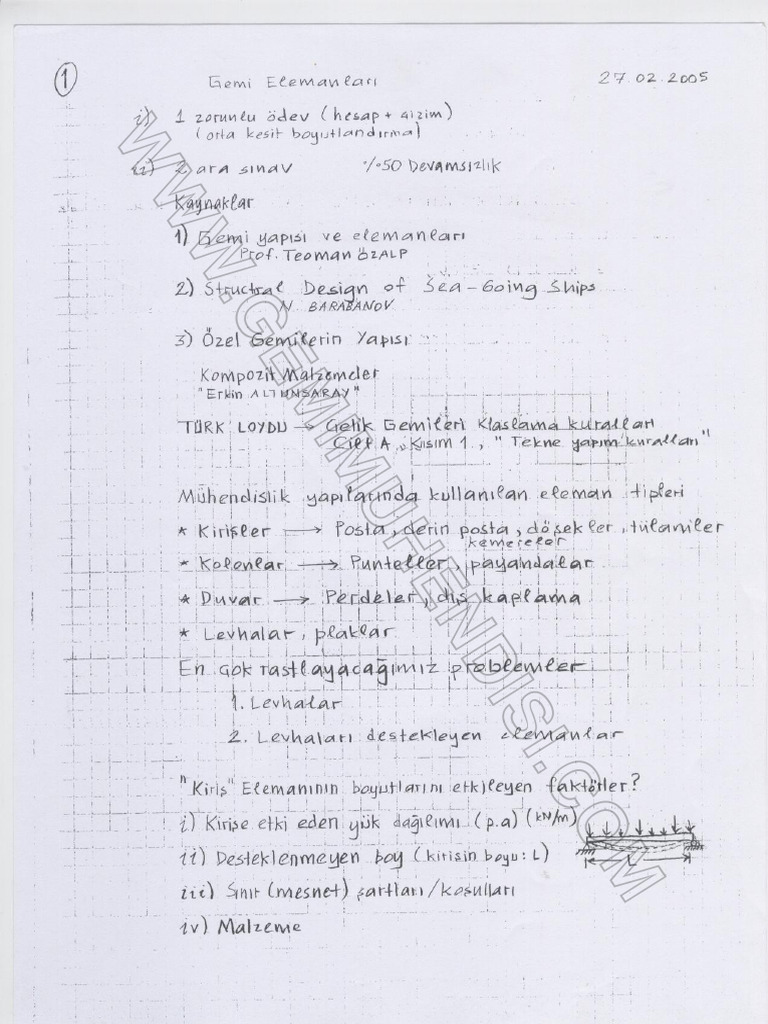 1
Gemi Elemanları 27.02.2005
i) 1 zorunlu ödev (hesap + çizim)
(orta kesit boyutlandırma)
ii) 2 ara sınav %50 Devamsızlık
Kaynaklar
1) Gemi yapısı ve elemanları
Prof. Teoman ÖZALP
2) Structral Design of Sea-Going Ships
N. BARABANOV
3) Özel Gemilerin Yapısı
Kompozit Malzemeler
"Erkin ALTUNSARAY"
TÜRK LOYDU → Çelik Gemileri Klaslama kuralları
Cilt A, Kısım 1, "Tekne yapım kuralları"
Mühendislik yapılarında kullanılan eleman tipleri
* Kirişler → Posta, derin posta, döşekler, tülaniler
kemereler
* Kolonlar → Punteller, payandalar
* Duvar → Perdeler, dış kaplama
* Levhalar, plaklar
En çok rastlayacağımız problemler
1. Levhalar
2. Levhaları destekleyen elemanlar
"Kiriş" Elemanının boyutlarını etkileyen faktörler?
i) Kirişe etki eden yük dağılımı (p.a) (kN/m)
ii) Desteklenmeyen boy (kirişin boyu: L)
L
iii) Sınır (mesnet) şartları/koşulları
iv) Malzeme
WWW.GEMIMUHENDISI.COM